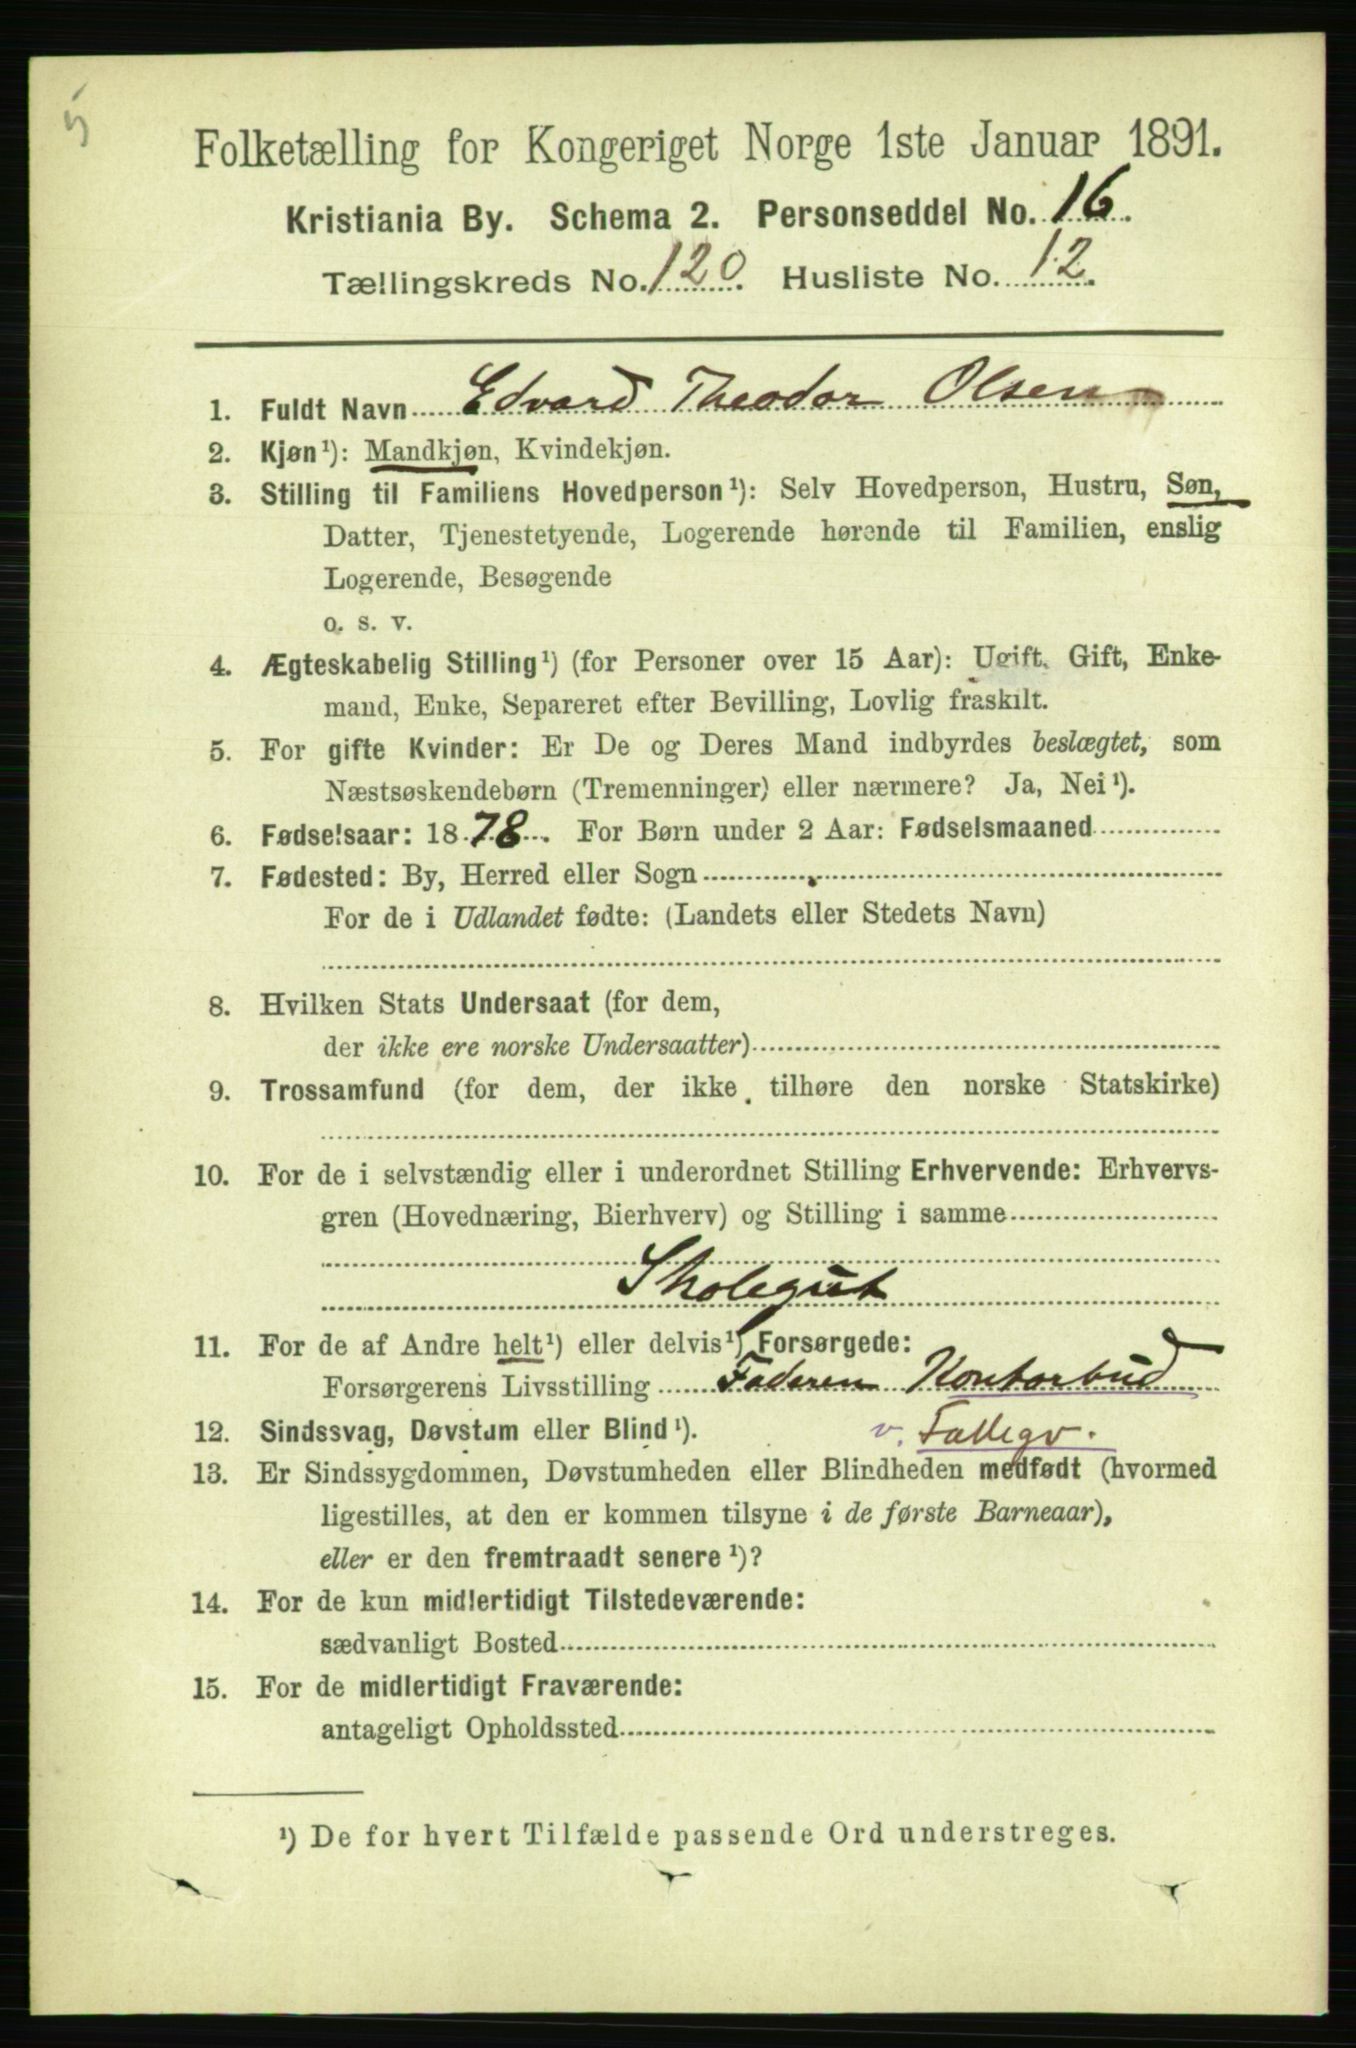 5
Folketælling for Kongeriget Norge 1ste Januar 1891.
Kristiania By. Schema 2. Personseddel No. 16.
Tællingskreds No. 120. Husliste No. 12.
1. Fuldt Navn Edvard Theodor Olsen
2. Kjøn¹): Mandkjøn, Kvindekjøn.
3. Stilling til Familiens Hovedperson¹): Selv Hovedperson, Hustru, Søn,
Datter, Tjenestetyende, Logerende hørende til Familien, enslig
Logerende, Besøgende
o. s. v.
4. Ægteskabelig Stilling¹) (for Personer over 15 Aar): Ugift, Gift, Enke-
mand, Enke, Separeret efter Bevilling, Lovlig fraskilt.
5. For gifte Kvinder: Er De og Deres Mand indbyrdes beslægtet, som
Næstsøskendebørn (Tremenninger) eller nærmere? Ja, Nei¹).
6. Fødselsaar: 1878. For Børn under 2 Aar: Fødselsmaaned
7. Fødested: By, Herred eller Sogn
For de i Udlandet fødte: (Landets eller Stedets Navn)
8. Hvilken Stats Undersaat (for dem,
der ikke ere norske Undersaatter)
9. Trossamfund (for dem, der ikke tilhøre den norske Statskirke)
10. For de i selvstændig eller i underordnet Stilling Erhvervende: Erhvervs-
gren (Hovednæring, Bierhverv) og Stilling i samme
Skolegut
11. For de af Andre helt¹) eller delvis¹) Forsørgede:
Forsørgerens Livsstilling Faderen Kontorbud
12. Sindssvag, Døvstum eller Blind¹). v. Fattegv.
13. Er Sindssygdommen, Døvstumheden eller Blindheden medfødt (hvormed
ligestilles, at den er kommen tilsyne i de første Barneaar),
eller er den fremtraadt senere¹)?
14. For de kun midlertidigt Tilstedeværende:
sædvanligt Bosted
15. For de midlertidigt Fraværende:
antageligt Opholdssted
¹) De for hvert Tilfælde passende Ord understreges.